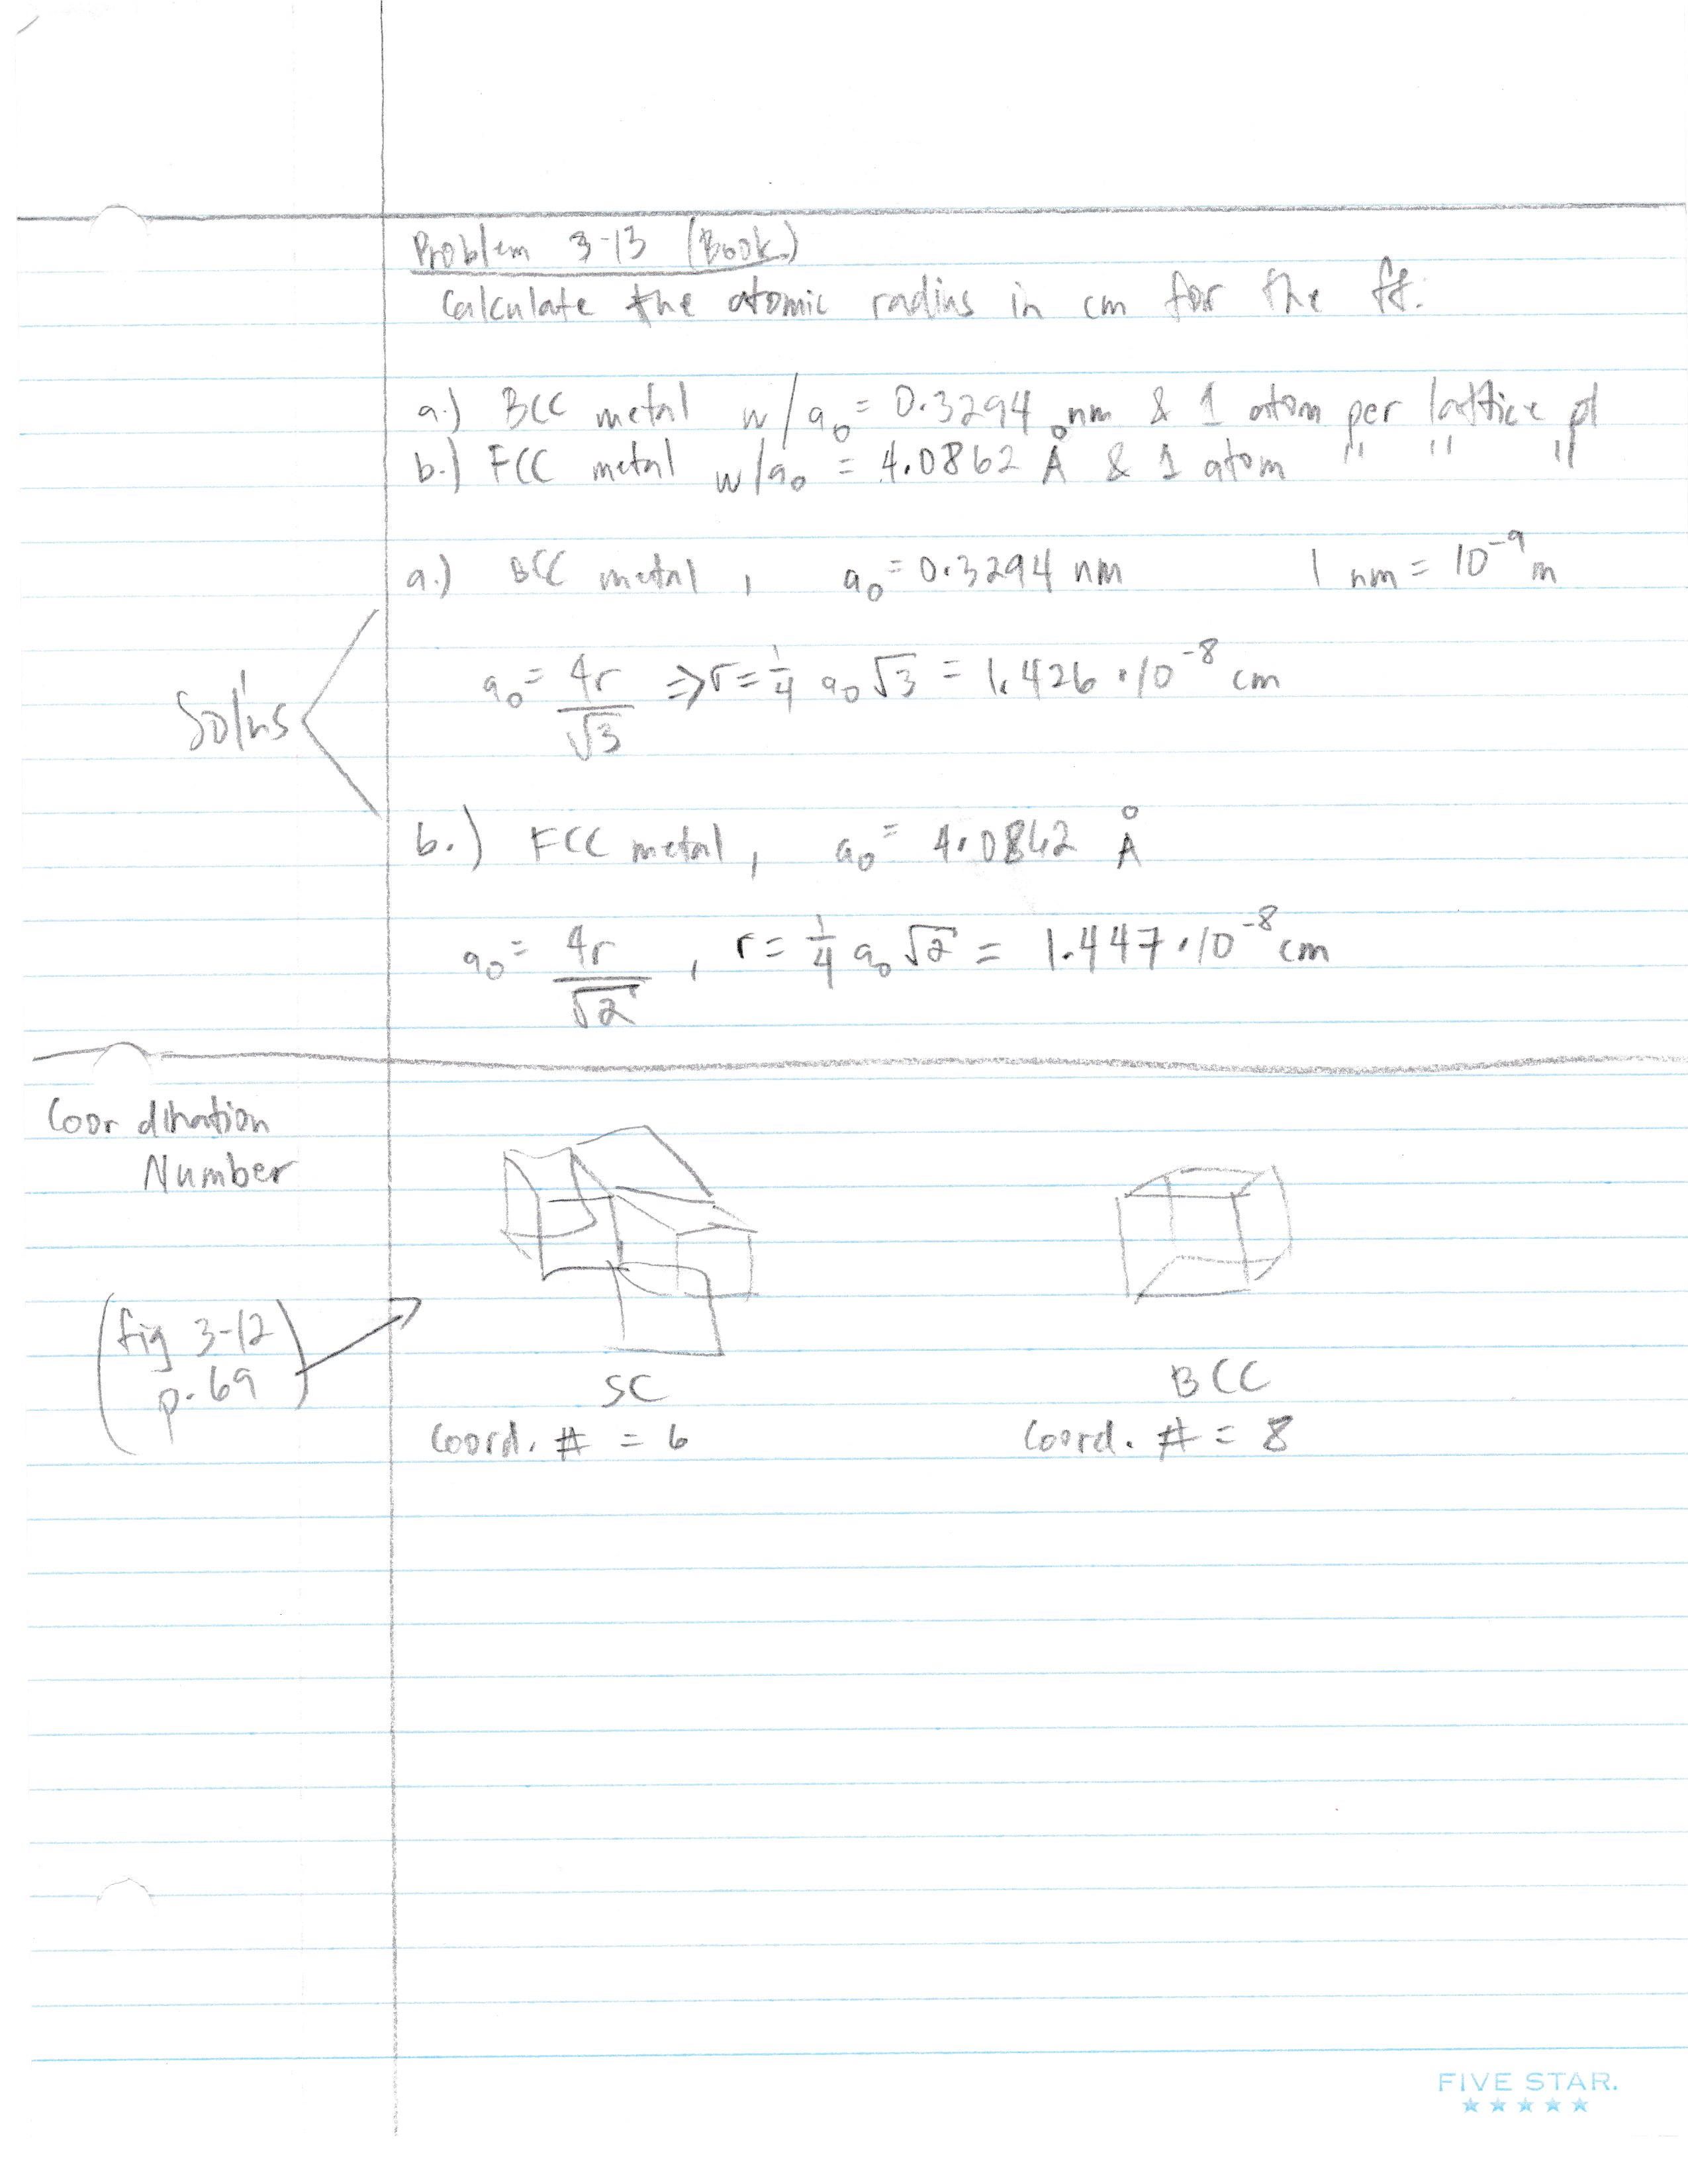 Problem 3-13 (Book)
Calculate the atomic radius in cm for the ff:
a.) BCC metal w/a₀ = 0.3294 nm & 1 atom per lattice pt
b.) FCC metal w/a₀ = 4.0862 Å & 1 atom " " "
a.) BCC metal, a₀ = 0.3294 nm 1 nm = 10⁻⁹ m
Sol'ns
a₀ = 4r/√3 ⇒ r = 1/4 a₀ √3 = 1.426 · 10⁻⁸ cm
b.) FCC metal, a₀ = 4.0862 Å
a₀ = 4r/√2, r = 1/4 a₀ √2 = 1.447 · 10⁻⁸ cm
Coordination
Number
(fig 3-12
p. 69)
SC
Coord. # = 6
BCC
Coord. # = 8
FIVE STAR.
★★★★★